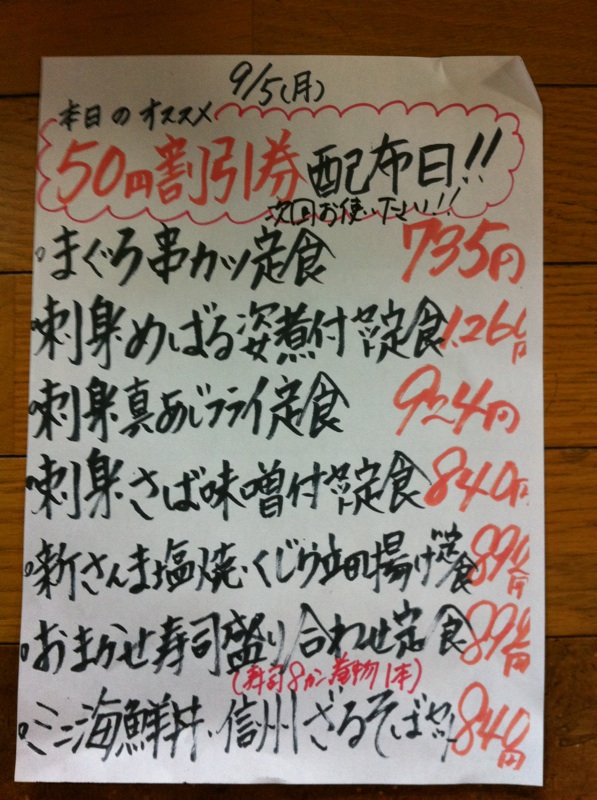 9/5(月)
本日のオススメ
50円割引券配布日!!
次回お使い下さい!!
まぐろ串カツ定食 735円
刺身めばる姿煮付セット定食 1.260円
刺身真あじフライ定食 924円
刺身さば味噌付セット定食 840円
新さんま塩焼・くじら立田揚げ定食 890円
おまかせ寿司盛り合わせ定食 890円
(寿司8カン巻物1本)
ミニ海鮮丼、信州ざるそばセット 840円